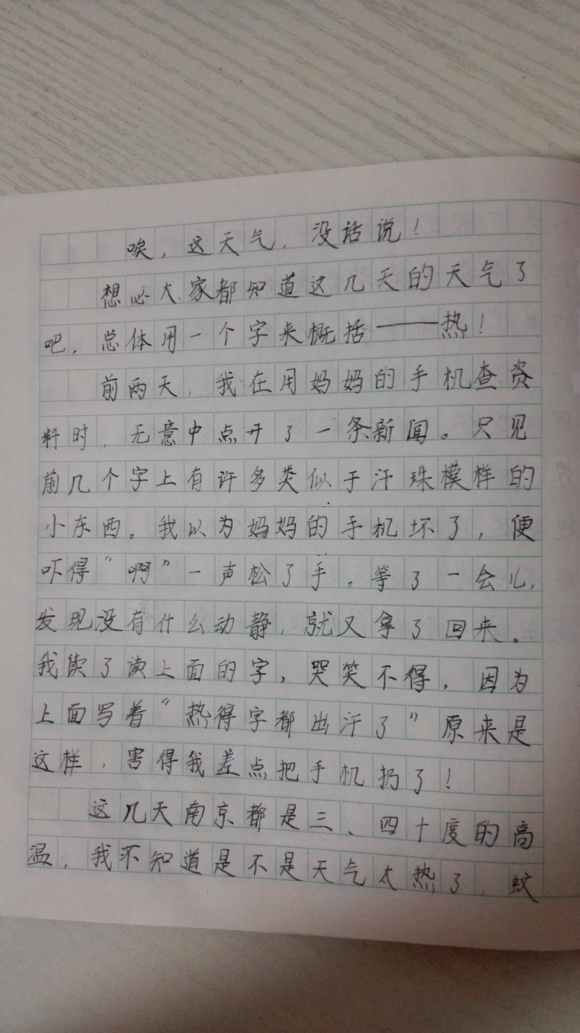 唉，这天气，没话说！
想必大家都知道这几天的天气了
吧，总体用一个字来概括——热！
前两天，我在用妈妈的手机查资
料时，无意中点开了一条新闻。只见
前几个字上有许多类似于汗珠模样的
小东西。我以为妈妈的手机坏了，便
吓得“啊”一声松了手。等了一会儿，
发现没有什么动静，就又拿了回来。
我读了读上面的字，哭笑不得，因为
上面写着“热得字都出汗了”原来是
这样，害得我差点把手机扔了！
这几天南京都是三、四十度的高
温，我不知道是不是天气太热了，蚊